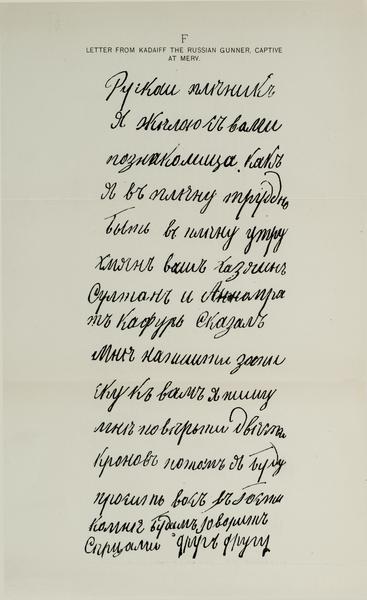 F
LETTER FROM KADAIFF THE RUSSIAN GUNNER, CAPTIVE
AT MERV.
Рускои плѣникъ
Я желою съ вами
познакомица. какъ
Я въ плѣну трудно
быть въ плѣну утру
хмянъ вашъ хазяинъ
Султанъ и
Кафурь сказалъ
Мнѣ напишти запи
ску къ вамъ я пишу
мнѣ повѣрыти двѣсти
кроновъ потомъ я буду
просить восъ въ гости
комнѣ будимъ говорить
другъ другу